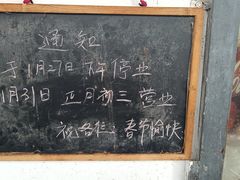 通知
于1月27日下午停业
1月31日 正月初三 营业
祝各位:春节愉快